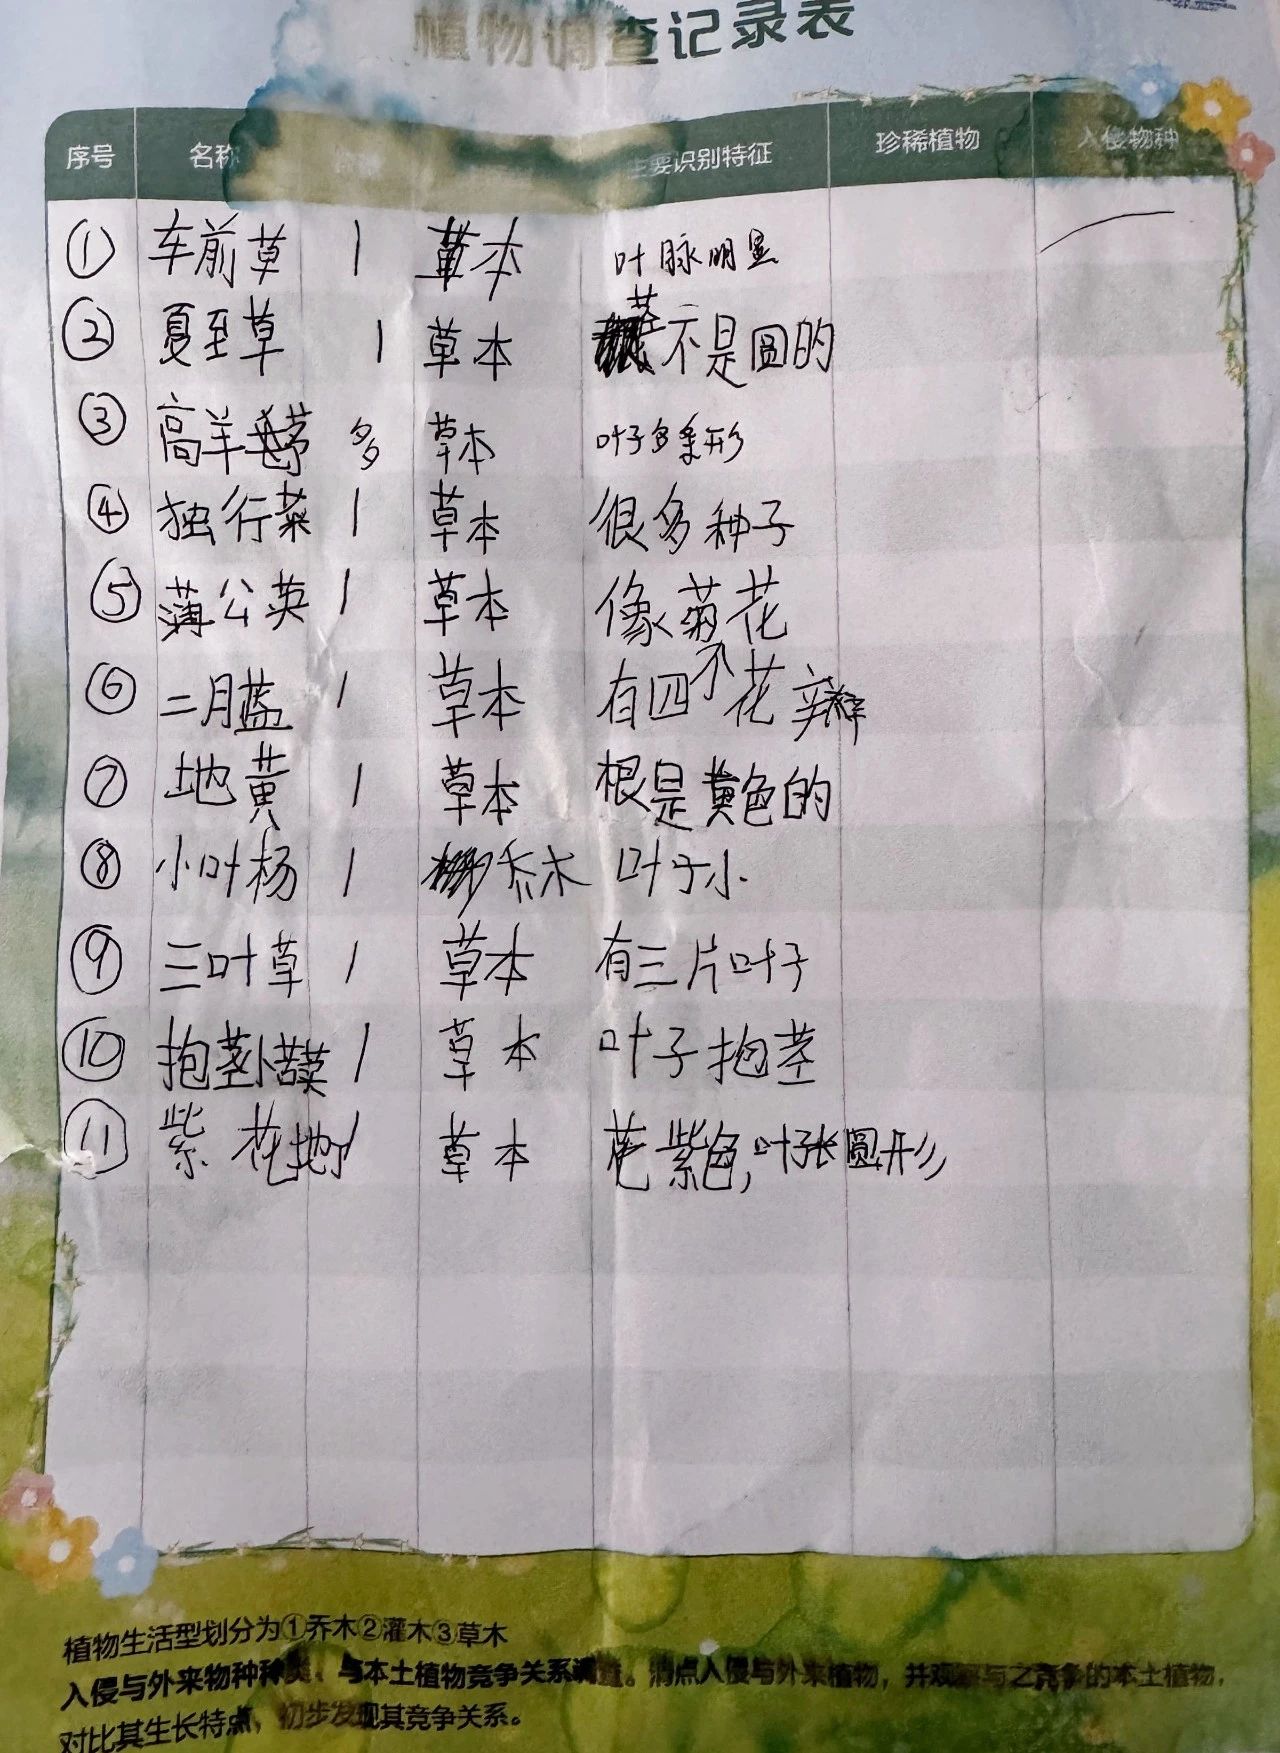 植物调查记录表
序号 名称 主要识别特征 珍稀植物 入侵物种
① 车前草 1 草本 叶脉明显
② 夏至草 1 草本 茎不是圆的
③ 高羊茅 多 草本 叶子多条形
④ 独行菜 1 草本 很多种子
⑤ 蒲公英 1 草本 像菊花
⑥ 二月蓝 1 草本 有四个花瓣
⑦ 地黄 1 草本 根是黄色的
⑧ 小叶杨 1 乔木 叶子小
⑨ 三叶草 1 草本 有三片叶子
⑩ 抱茎小苦荬 1 草本 叶子抱茎
⑪ 紫花地丁 1 草本 花紫色,叶子长圆形
植物生活型划分为①乔木②灌木③草木
入侵与外来物种种类、与本土植物竞争关系调查。清点入侵与外来植物,并观察与之竞争的本土植物,
对比其生长特点,初步发现其竞争关系。